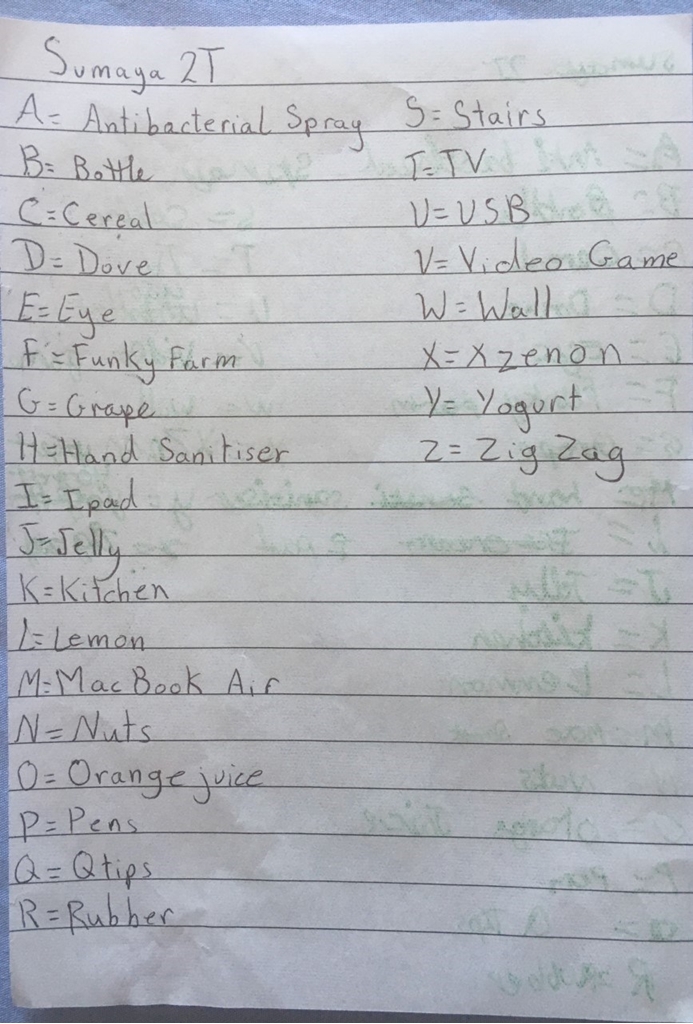 Sumaya 2T
A= Antibacterial Spray
B= Bottle
C=Cereal
D= Dove
E=Eye
F=Funky Farm
G=Grape
H=Hand Sanitiser
I=Ipad
J=Jelly
K=Kitchen
L=Lemon
M=MacBook Air
N=Nuts
O=Orange juice
P=Pens
Q=Qtips
R=Rubber
S=Stairs
T=TV
U=USB
V=Video Game
W=Wall
X=Xzenon
Y=Yogurt
Z=Zig Zag